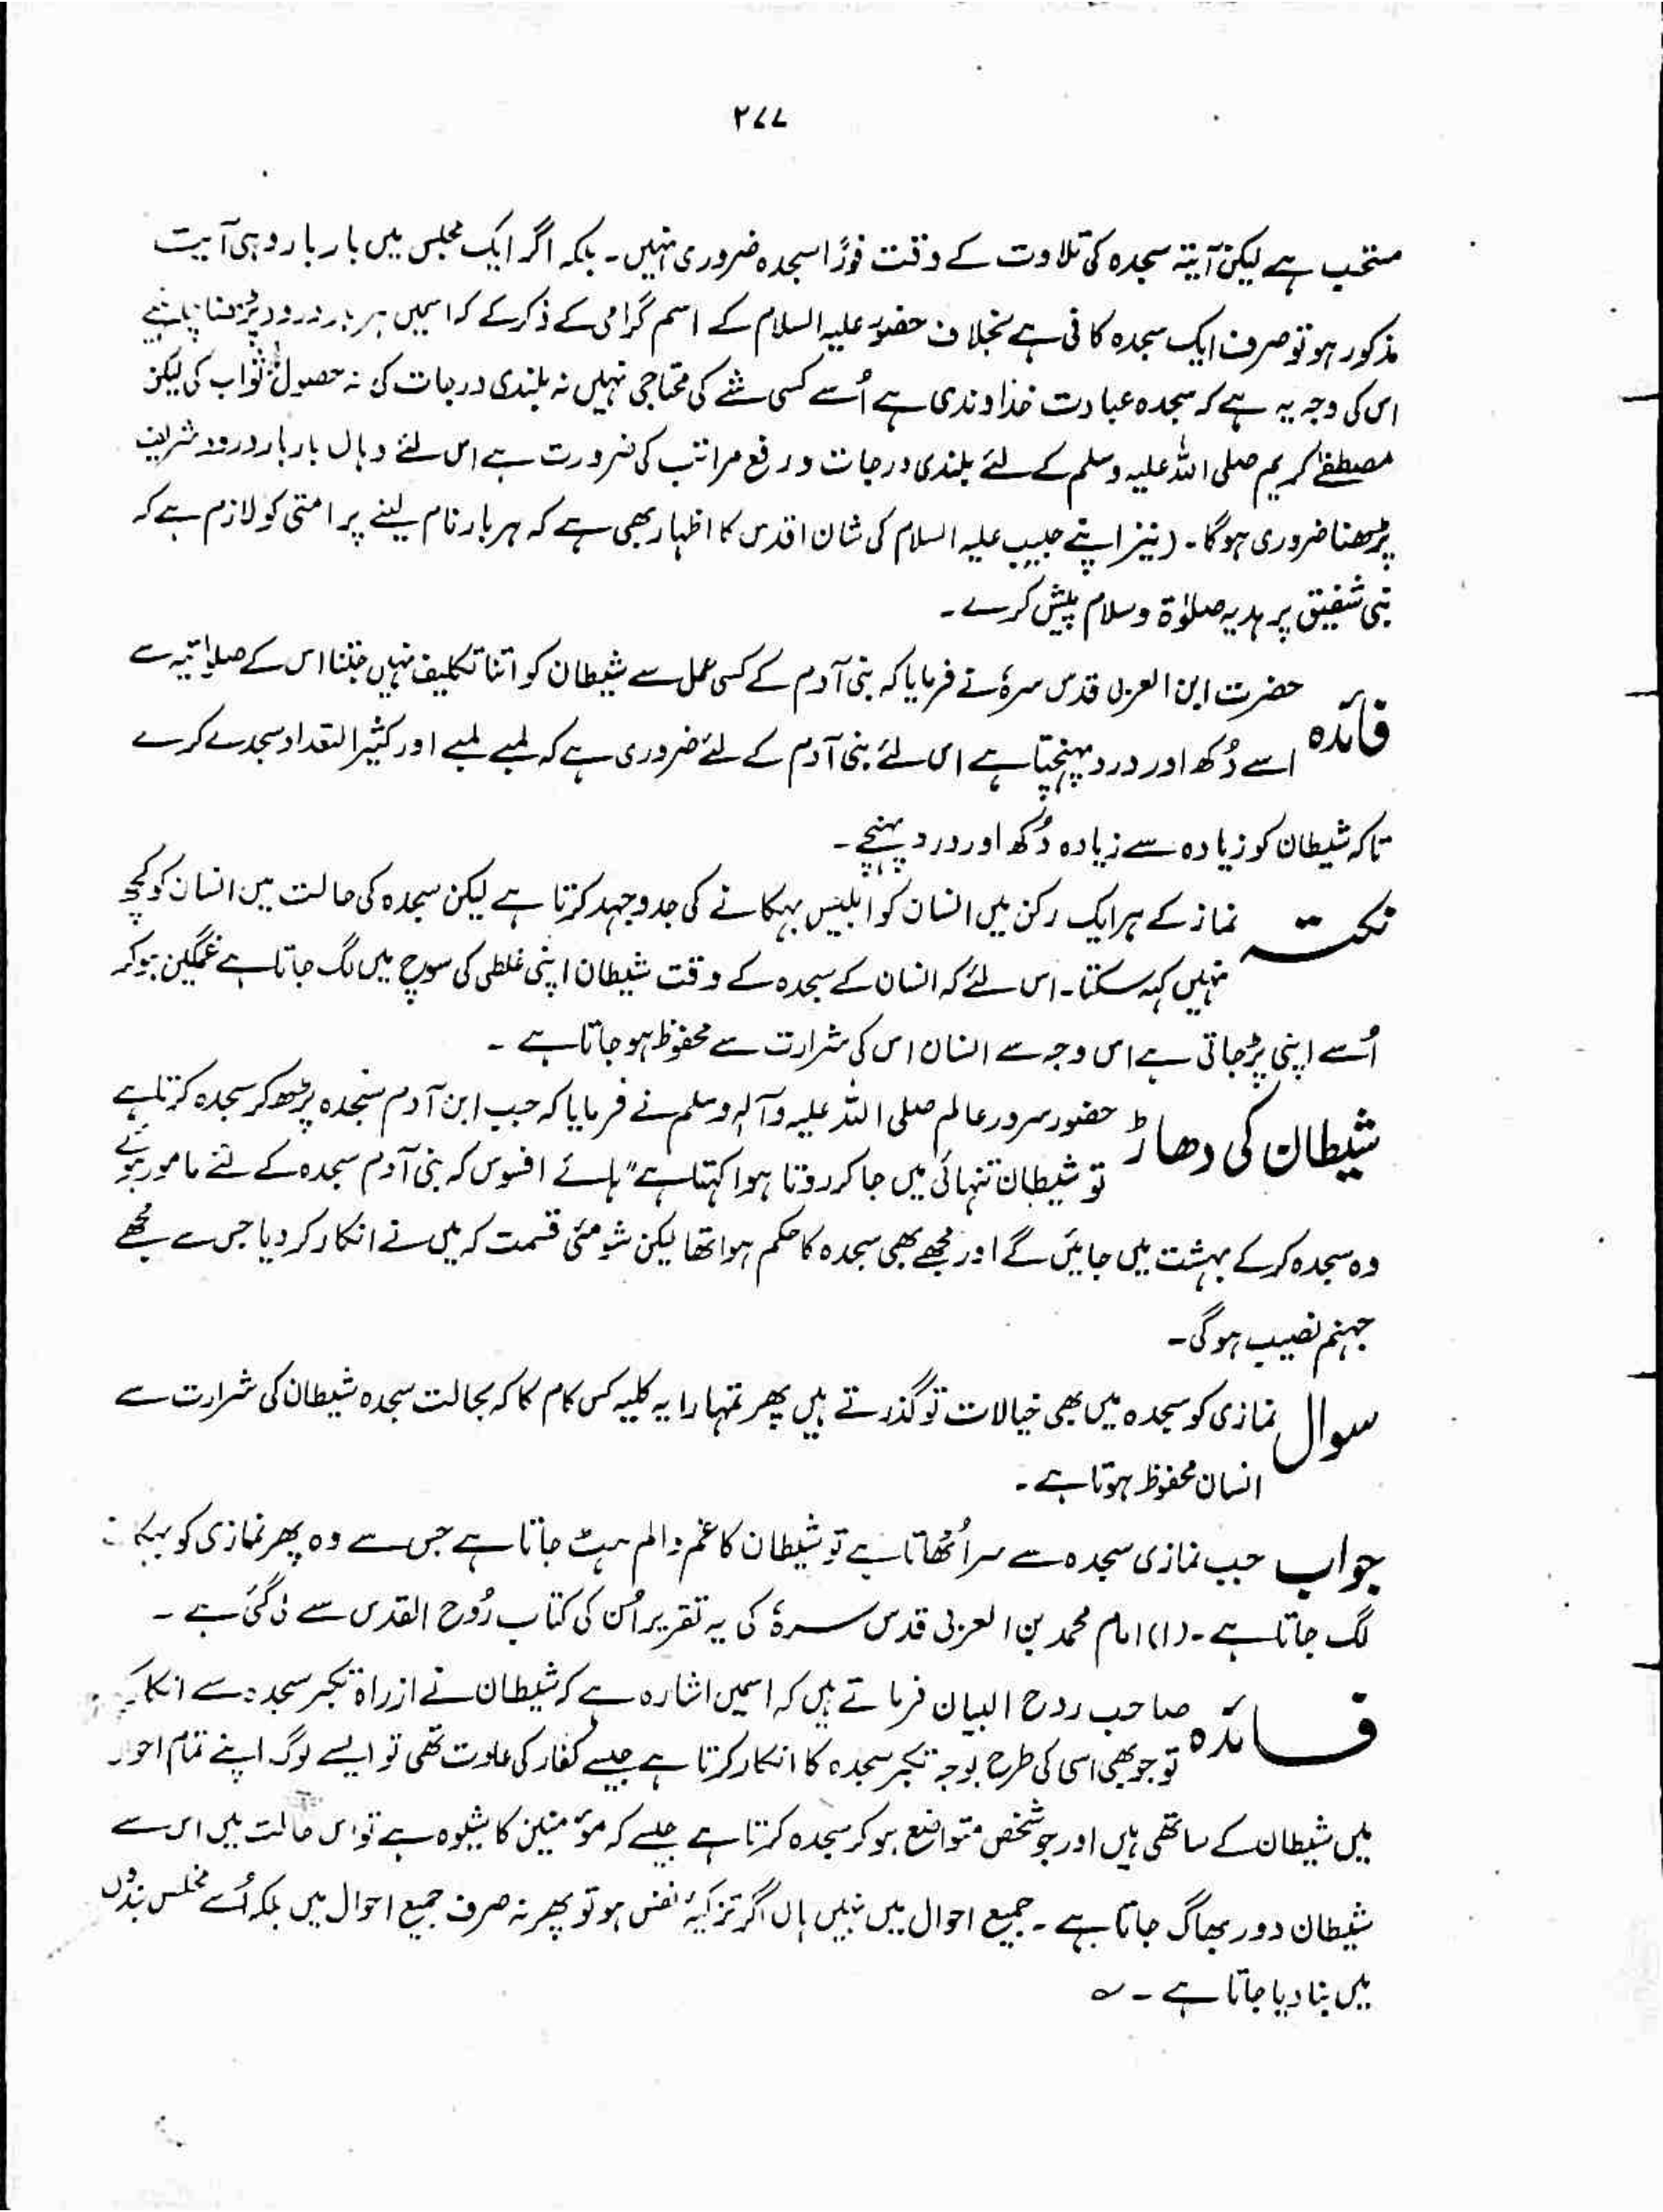 ۲۷۷
مستحب ہے لیکن آیتہ سجدہ کی تلاوت کے وقت فورًا سجدہ ضروری نہیں۔ بلکہ اگر ایک مجلس میں بار بار وہی آیت
مذکور ہو تو صرف ایک سجدہ کافی ہے بخلاف حضور علیہ السلام کے اسم گرامی کے ذکر کے کہ اسمیں ہر بار درود پڑھنا چاہئیے
اس کی وجہ یہ ہے کہ سجدہ عبادت خداوندی ہے اُسے کسی شئے کی محتاجی نہیں نہ بلندی درجات کی نہ حصول ثواب کی لیکن
مصطفےٰ کریم صلی اللہ علیہ وسلم کے لئے بلندی درجات و رفع مراتب کی ضرورت ہے اس لئے وہاں بار بار درود شریف
پڑھنا ضروری ہوگا۔ (نیز اپنے حبیب علیہ السلام کی شان اقدس کا اظہار بھی ہے کہ ہر بار نام لینے پر امتی کو لازم ہے کہ
نبی شفیق پر ہدیہ صلوٰۃ وسلام پیش کرے۔
فائدہ حضرت ابن العربی قدس سرہٗ نے فرمایا کہ بنی آدم کے کسی عمل سے شیطان کو اتنا تکلیف نہیں جتنا اس کے سے
اسے دُکھ اور درد پہنچتا ہے اس لئے بنی آدم کے لئے ضروری ہے کہ لمبے لمبے اور کثیر التعداد سجدے کرے
تاکہ شیطان کو زیادہ سے زیادہ دُکھ اور درد پہنچے۔
نکتہ نماز کے ہر ایک رکن میں انسان کو ابلیس بہکانے کی جدوجہد کرتا ہے لیکن سجدہ کی حالت میں انسان کو کچھ
نہیں کہہ سکتا۔ اس لئے کہ انسان کے سجدہ کے وقت شیطان اپنی غلطی کی سوچ میں لگ جاتا ہے غمگین ہوکر
اُسے اپنی پڑجاتی ہے اس وجہ سے انسان اس کی شرارت سے محفوظ ہو جاتا ہے ۔
شیطان کی دھاڑ حضور سرور عالم صلی اللہ علیہ وآلہ وسلم نے فرمایا کہ جب ابن آدم سجدہ پڑھ کر سجدہ کرتا ہے
تو شیطان تنہائی میں جا کر روتا ہوا کہتا ہے "ہائے افسوس کہ بنی آدم سجدہ کے لئے مامور ہوئے
وہ سجدہ کرکے بہشت میں جائیں گے اور مجھے بھی سجدہ کا حکم ہوا تھا لیکن شومئی قسمت کہ میں نے انکار کر دیا جس سے مجھے
جہنم نصیب ہوگی۔
سوال نمازی کو سجدہ میں بھی خیالات تو گذرتے ہیں پھر تمہارا یہ کلیہ کس کام کا کہ بحالت سجدہ شیطان کی شرارت سے
انسان محفوظ ہوتا ہے ۔
جواب جب نمازی سجدہ سے سر اُٹھاتا ہے تو شیطان کا غم و الم ہٹ جاتا ہے جس سے وہ پھر نمازی کو
لگ جاتا ہے ۔ (۱) امام محمد بن العربی قدس سرہٗ کی یہ تقریر اُن کی کتاب رُوح القدس سے لی گئی ہے ۔
فائدہ صاحب روح البیان فرماتے ہیں کہ اسمیں اشارہ ہے کہ شیطان نے ازراہ تکبر سجدہ سے انکار
تو جو بھی اسی کی طرح بوجہ تکبر سجدہ کا انکار کرتا ہے جیسے کفار کی عادت تھی تو ایسے لوگ اپنے تمام
میں شیطان کے ساتھی ہیں اور جو شخص متواضع ہو کر سجدہ کرتا ہے جیسے کہ مومنین کا شیوہ ہے تو اس حالت میں اس سے
شیطان دور بھاگ جاتا ہے ۔ جمیع احوال میں نہیں ہاں اگر تزکیۂ نفس ہو تو پھر نہ صرف جمیع احوال میں بلکہ اُسے مخلص بندوں
میں بنا دیا جاتا ہے ۔ ؎